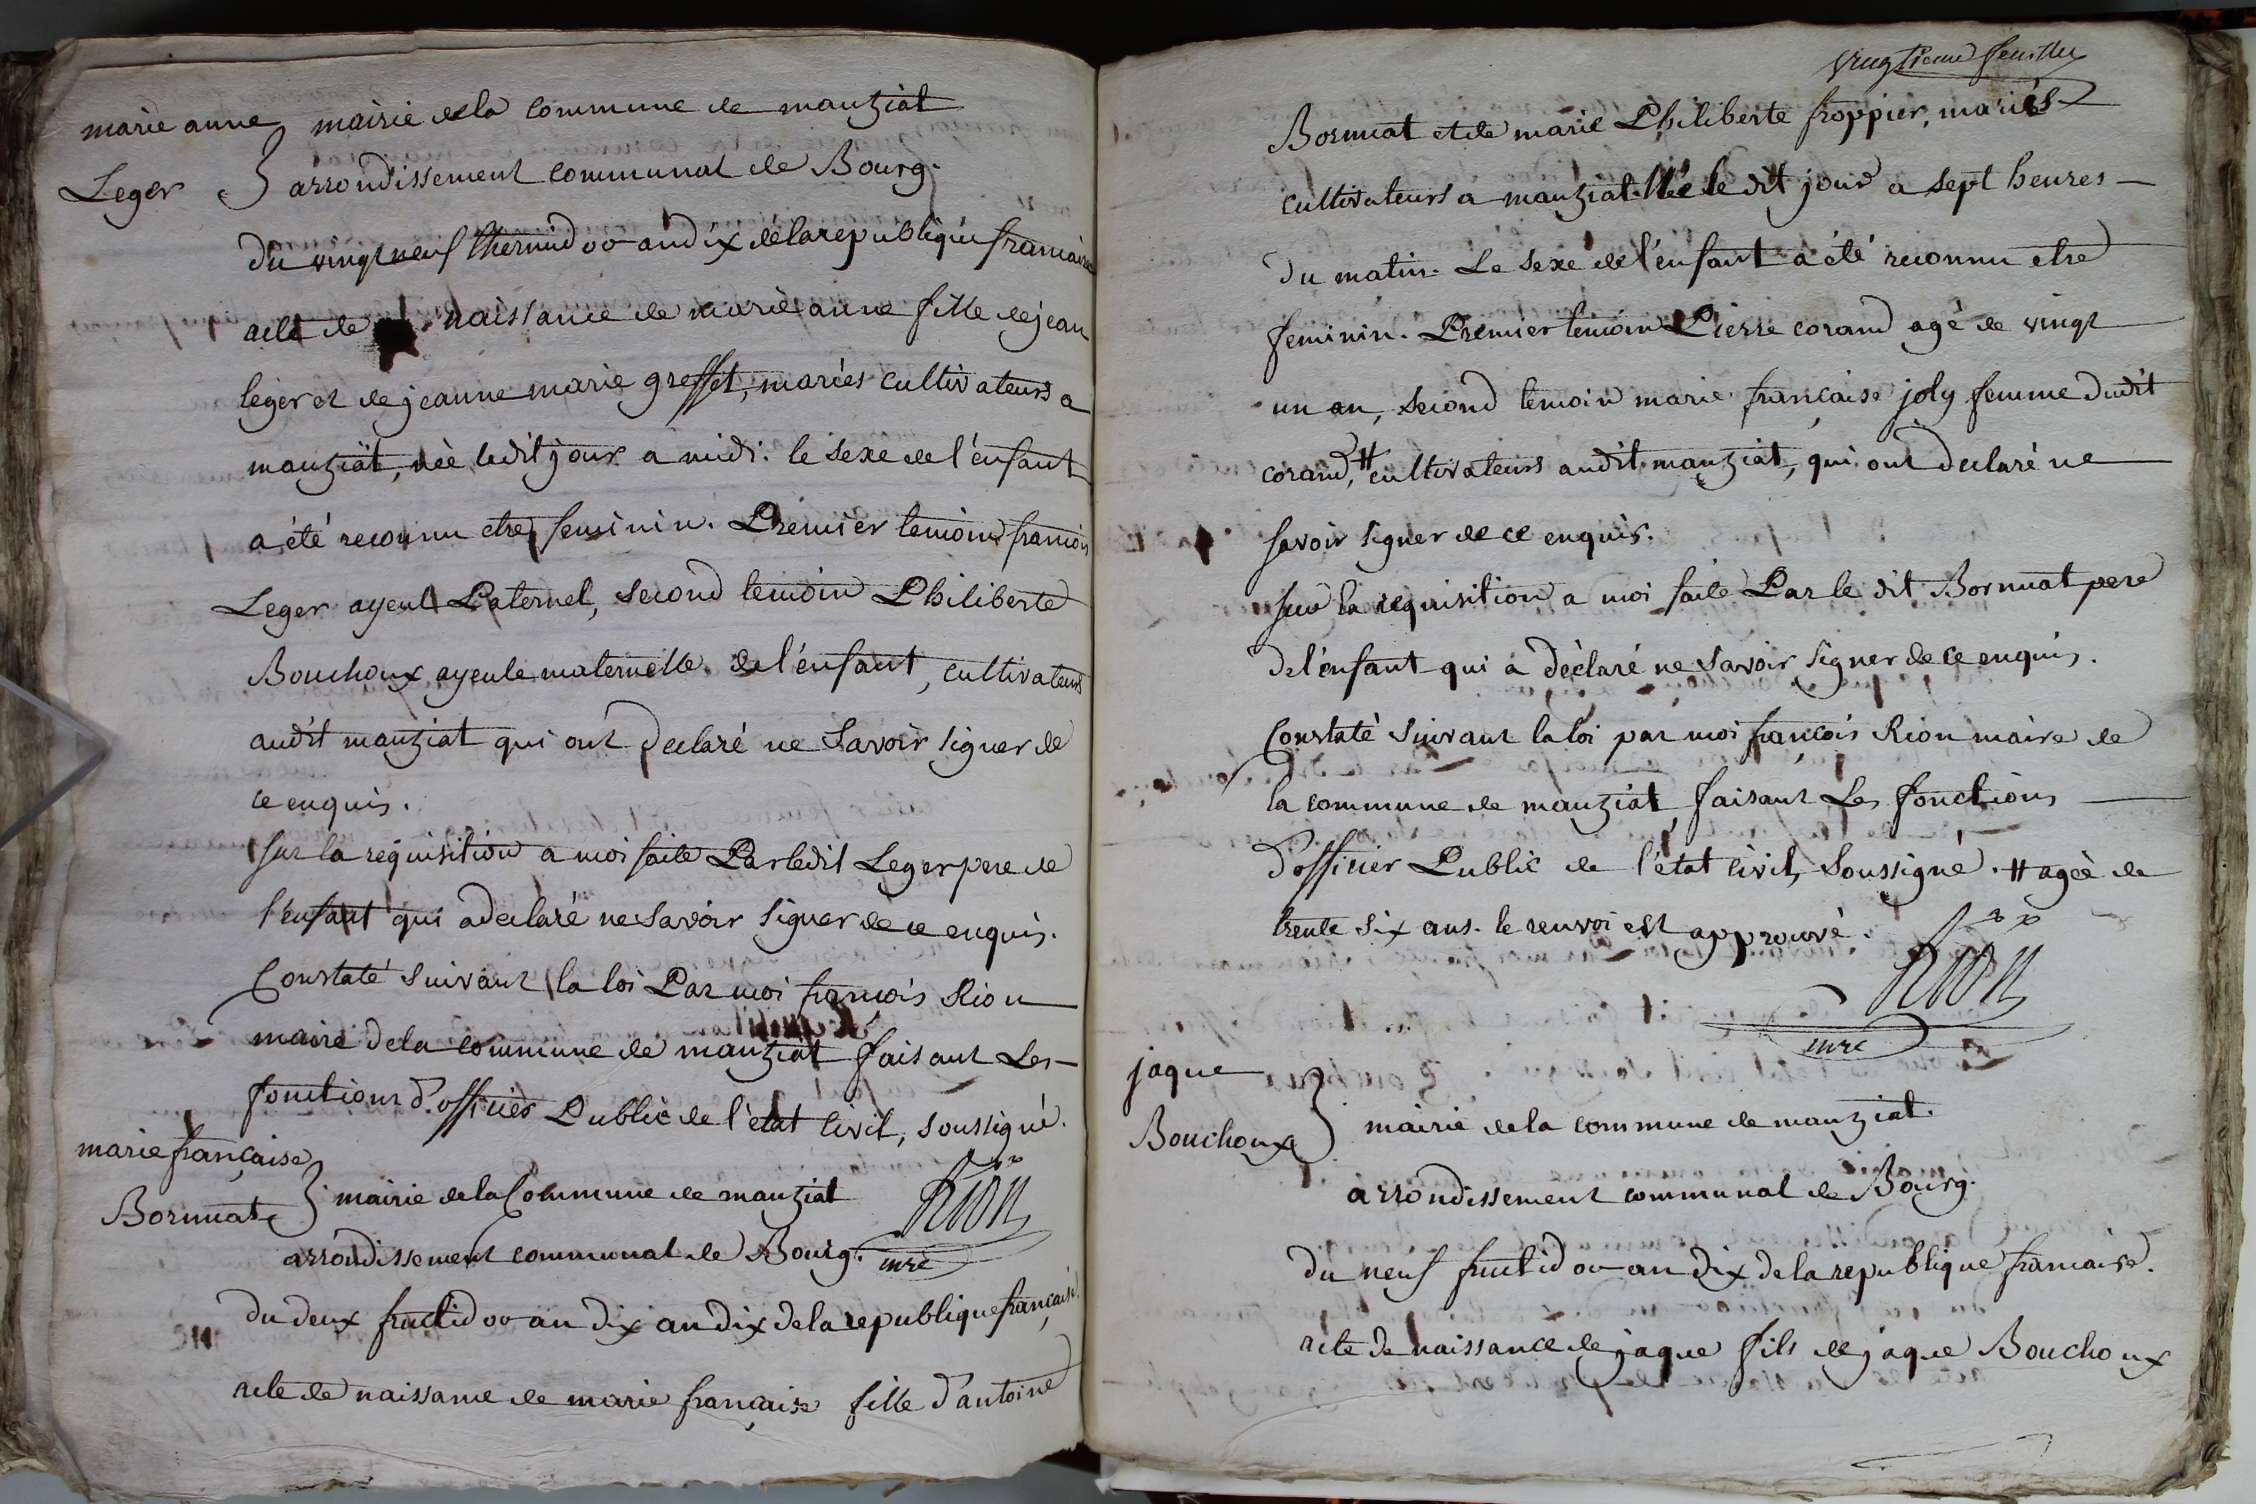 marie anne
Leger
mairie dela commune de manziat
arrondissement communal de Bourg.
Du vingt neuf thermidor an dix de la republique francaise
acte de naissance de marie anne fille de jean
leger et de jeanne marie greffet, mariés cultivateurs a
manziat, née ledit jour a midi. le sexe de l'énfant
a été reconnu etre feminin. Premier temoin francois
Leger ayeul Paternel, second temoin Philiberte
Bouchoux ayeule maternelle de l'énfant, cultivateurs
audit manziat qui ont declaré ne savoir signer de
ce enquis.
sur la requisition a moi faite Par ledit Leger pere de
l'enfant qui a declaré ne savoir signer de ce enquis.
Constaté suivant la loi Par moi françois Rion
maire dela commune de manziat faisant Les
fonctions d'officier Public de l'état civil, soussigné.
Rion
mre
marie française
Bornuat
mairie dela Commune de manziat
arrondissement communal de Bourg.
du deux fructidor an dix an dix dela republique française
acte de naissance de marie française fille d'antoine
vingtieme feuillet
Bornuat et de marie Philiberte froppier, mariés
cultivateurs a manziat. Née le dit jour a sept heures
du matin. Le sexe de l'énfant a été reconnu etre
feminin. Premier temoin Pierre corand agé de vingt
un an, second temoin marie française joly femme dudit
corand, # cultivateurs audit manziat, qui ont declaré ne
savoir signer de ce enquis.
sur la requisition a moi faite Par le dit Bornuat pere
de l'énfant qui a dèclaré ne savoir signer de ce enquis.
Constaté suivant la loi par moi françois Rion maire de
la commune de manziat, faisant Les fonctions
d'officier Public de l'état civil, soussigné. # agée de
trente six ans. le renvoi est approuvé.
Rion
mre
jaque
Bouchoux
mairie dela commune de manziat.
arrondissement communal de Bourg.
du neuf fructidor an dix de la republique francaise.
acte de naissance de jaque fils de jaque Bouchoux